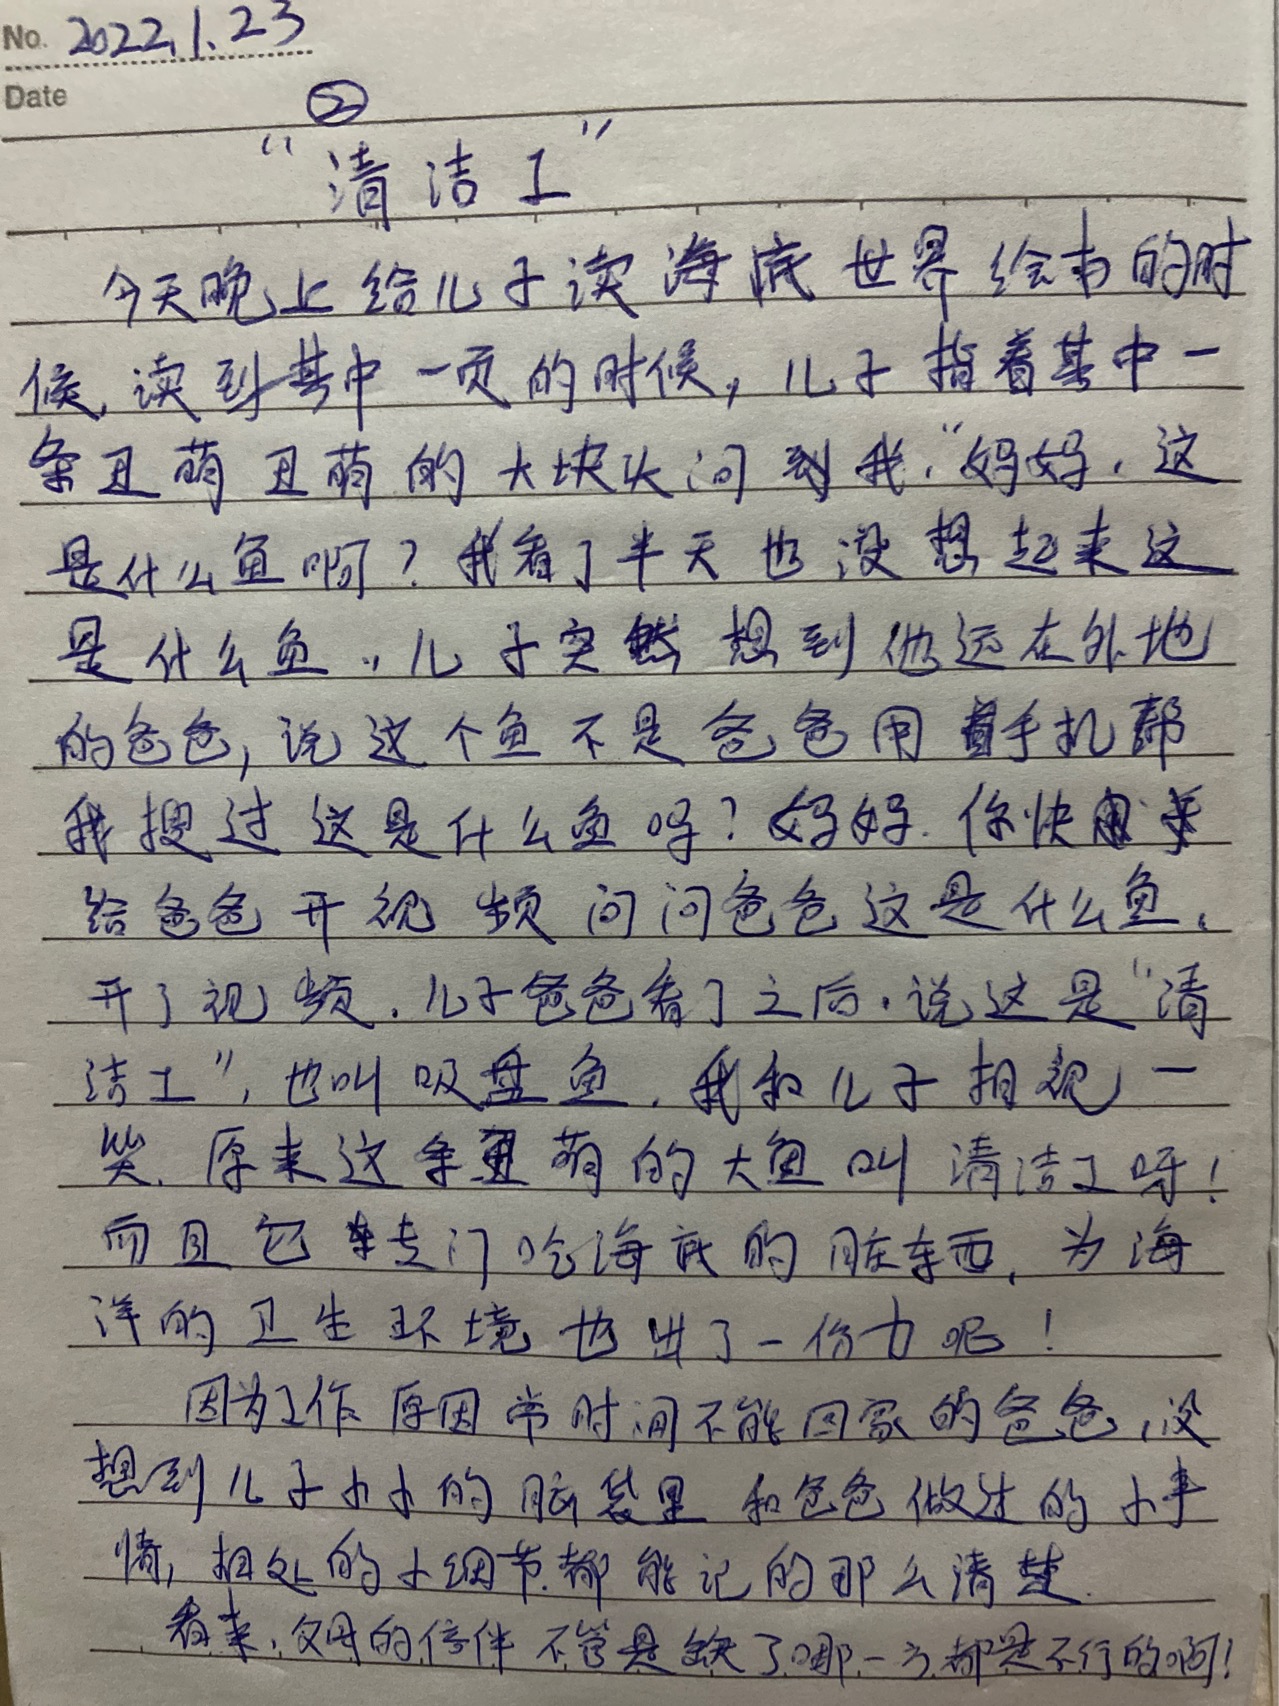 No. 2022.1.23
Date
②
“清洁工”
今天晚上给儿子读海底世界绘本的时
候,读到其中一页的时候,儿子指着其中一
条丑萌丑萌的大块头问到我,“妈妈,这
是什么鱼啊?我看了半天也没想起来这
是什么鱼,儿子突然想到他远在外地
的爸爸,说这个鱼不是爸爸用手机帮
我搜过这是什么鱼吗?妈妈.你快来
给爸爸开视频问问爸爸这是什么鱼.
开了视频.儿子爸爸看了之后.说这是“清
洁工”,也叫吸盘鱼.我和儿子相视一
笑.原来这条丑萌的大鱼叫清洁工呀!
而且它专门吃海底的脏东西,为海
洋的卫生环境也出了一份力呢!
因为工作原因常时间不能回家的爸爸,没
想到儿子小小的脑袋里和爸爸做过的小事
情,相处的小细节都能记的那么清楚.
看来,父母的陪伴不管是缺了哪一方都是不行的啊!